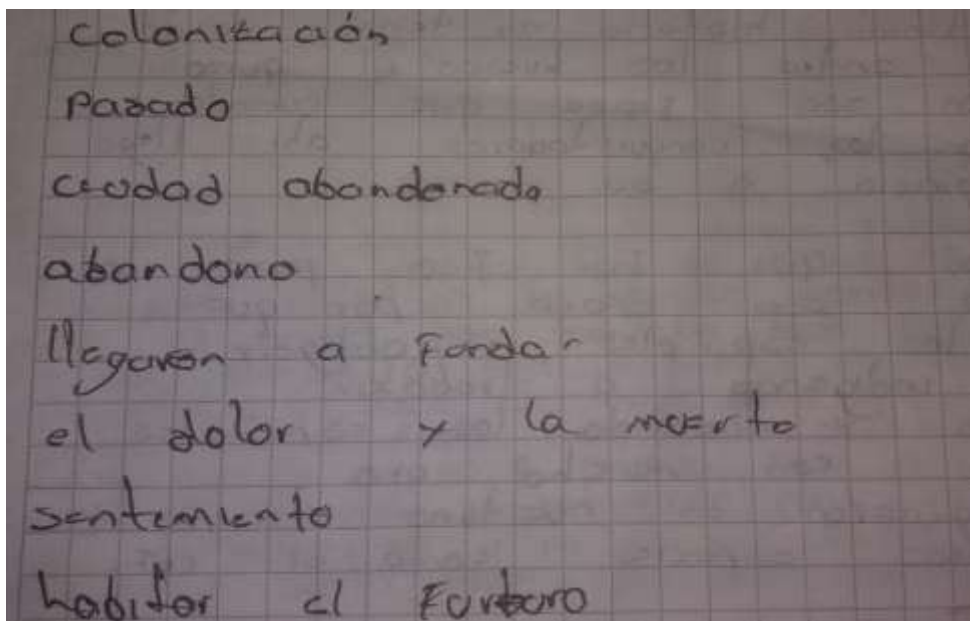 colonización
Pasado
ciudad abandonada
abandono
llegaron a Fundar
el dolor y la muerte
sentimiento
habitar el Futuro